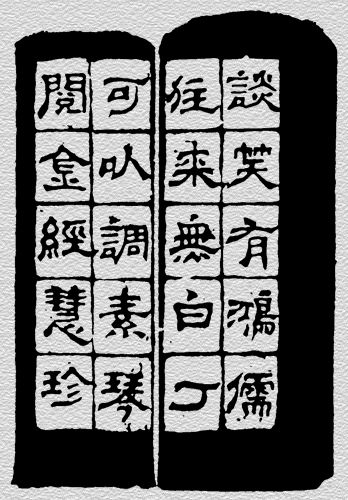 談笑有鴻儒
往来無白丁
可以調素琴
閱金經慧珍